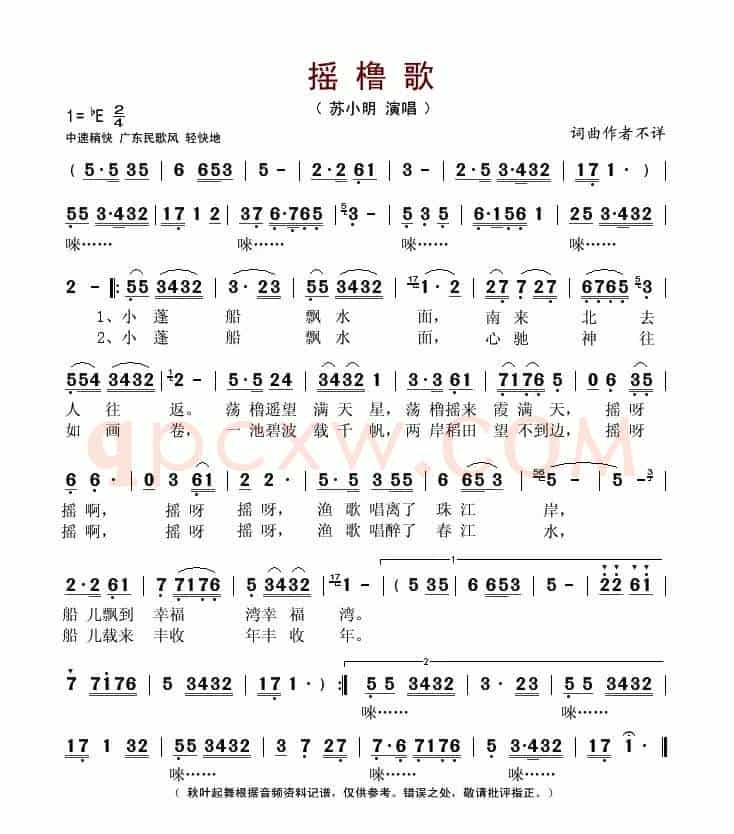 摇橹歌
（苏小明 演唱）
1=♭E 2/4
中速稍快 广东民歌风 轻快地
词曲作者不详
( 5·5 35 | 6 653 | 5 - | 2·2 61 | 3 - | 2·5 3·432 | 171 · ) |
55 3·432 | 17 1 2 | 37 6·765 | 5 3 - | 5 3 5 | 6·156 1 | 25 3·432 |
唻…… 唻…… 唻…… 唻……
2 - |: 55 3432 | 3· 23 | 5 5 3 5 | 17 1· 2 | 27 7 27 | 6765 5 3 |
1、小蓬 船 飘水 面，南来 北去
2、小蓬 船 飘水 面，心驰 神往
554 3432 | 1 2 - | 5·5 24 | 3432 1 | 3·3 61 | 7176 5 | 06 35 |
人往 返。荡橹遥望 满天星，荡橹摇来 霞满天，摇呀
如画 卷，一池碧波 载千帆，两岸稻田 望不到边，摇呀
6 6· | 0 3 61 | 2 2· | 5·5 3 55 | 6 653 | 56 5 - | 5 - 3 |
摇啊， 摇呀 摇呀，渔歌 唱离了 珠江 岸，
摇啊， 摇呀 摇呀，渔歌 唱醉了 春江 水，
2·2 61 | 7 7176 | 5 3432 | 17 1 - | ( 5 535 | 6 653 | 5 - | 22 61 |
船儿飘到 幸福 湾幸福 湾。
船儿载来 丰收 年丰收 年。
1
7 7176 | 5 3432 | 171 · ) :| 5 5 3432 | 3 · 23 | 5 5 3432 |
2
唻…… 唻……
17 1 32 | 55 3432 | 3 7 27 | 7·6 7656 | 5 5 3432 | 17 1 · |
唻…… 唻……
（ 秋叶起舞根据音频资料记谱，仅供参考。错误之处，敬请批评指正。）
qpcxw.com